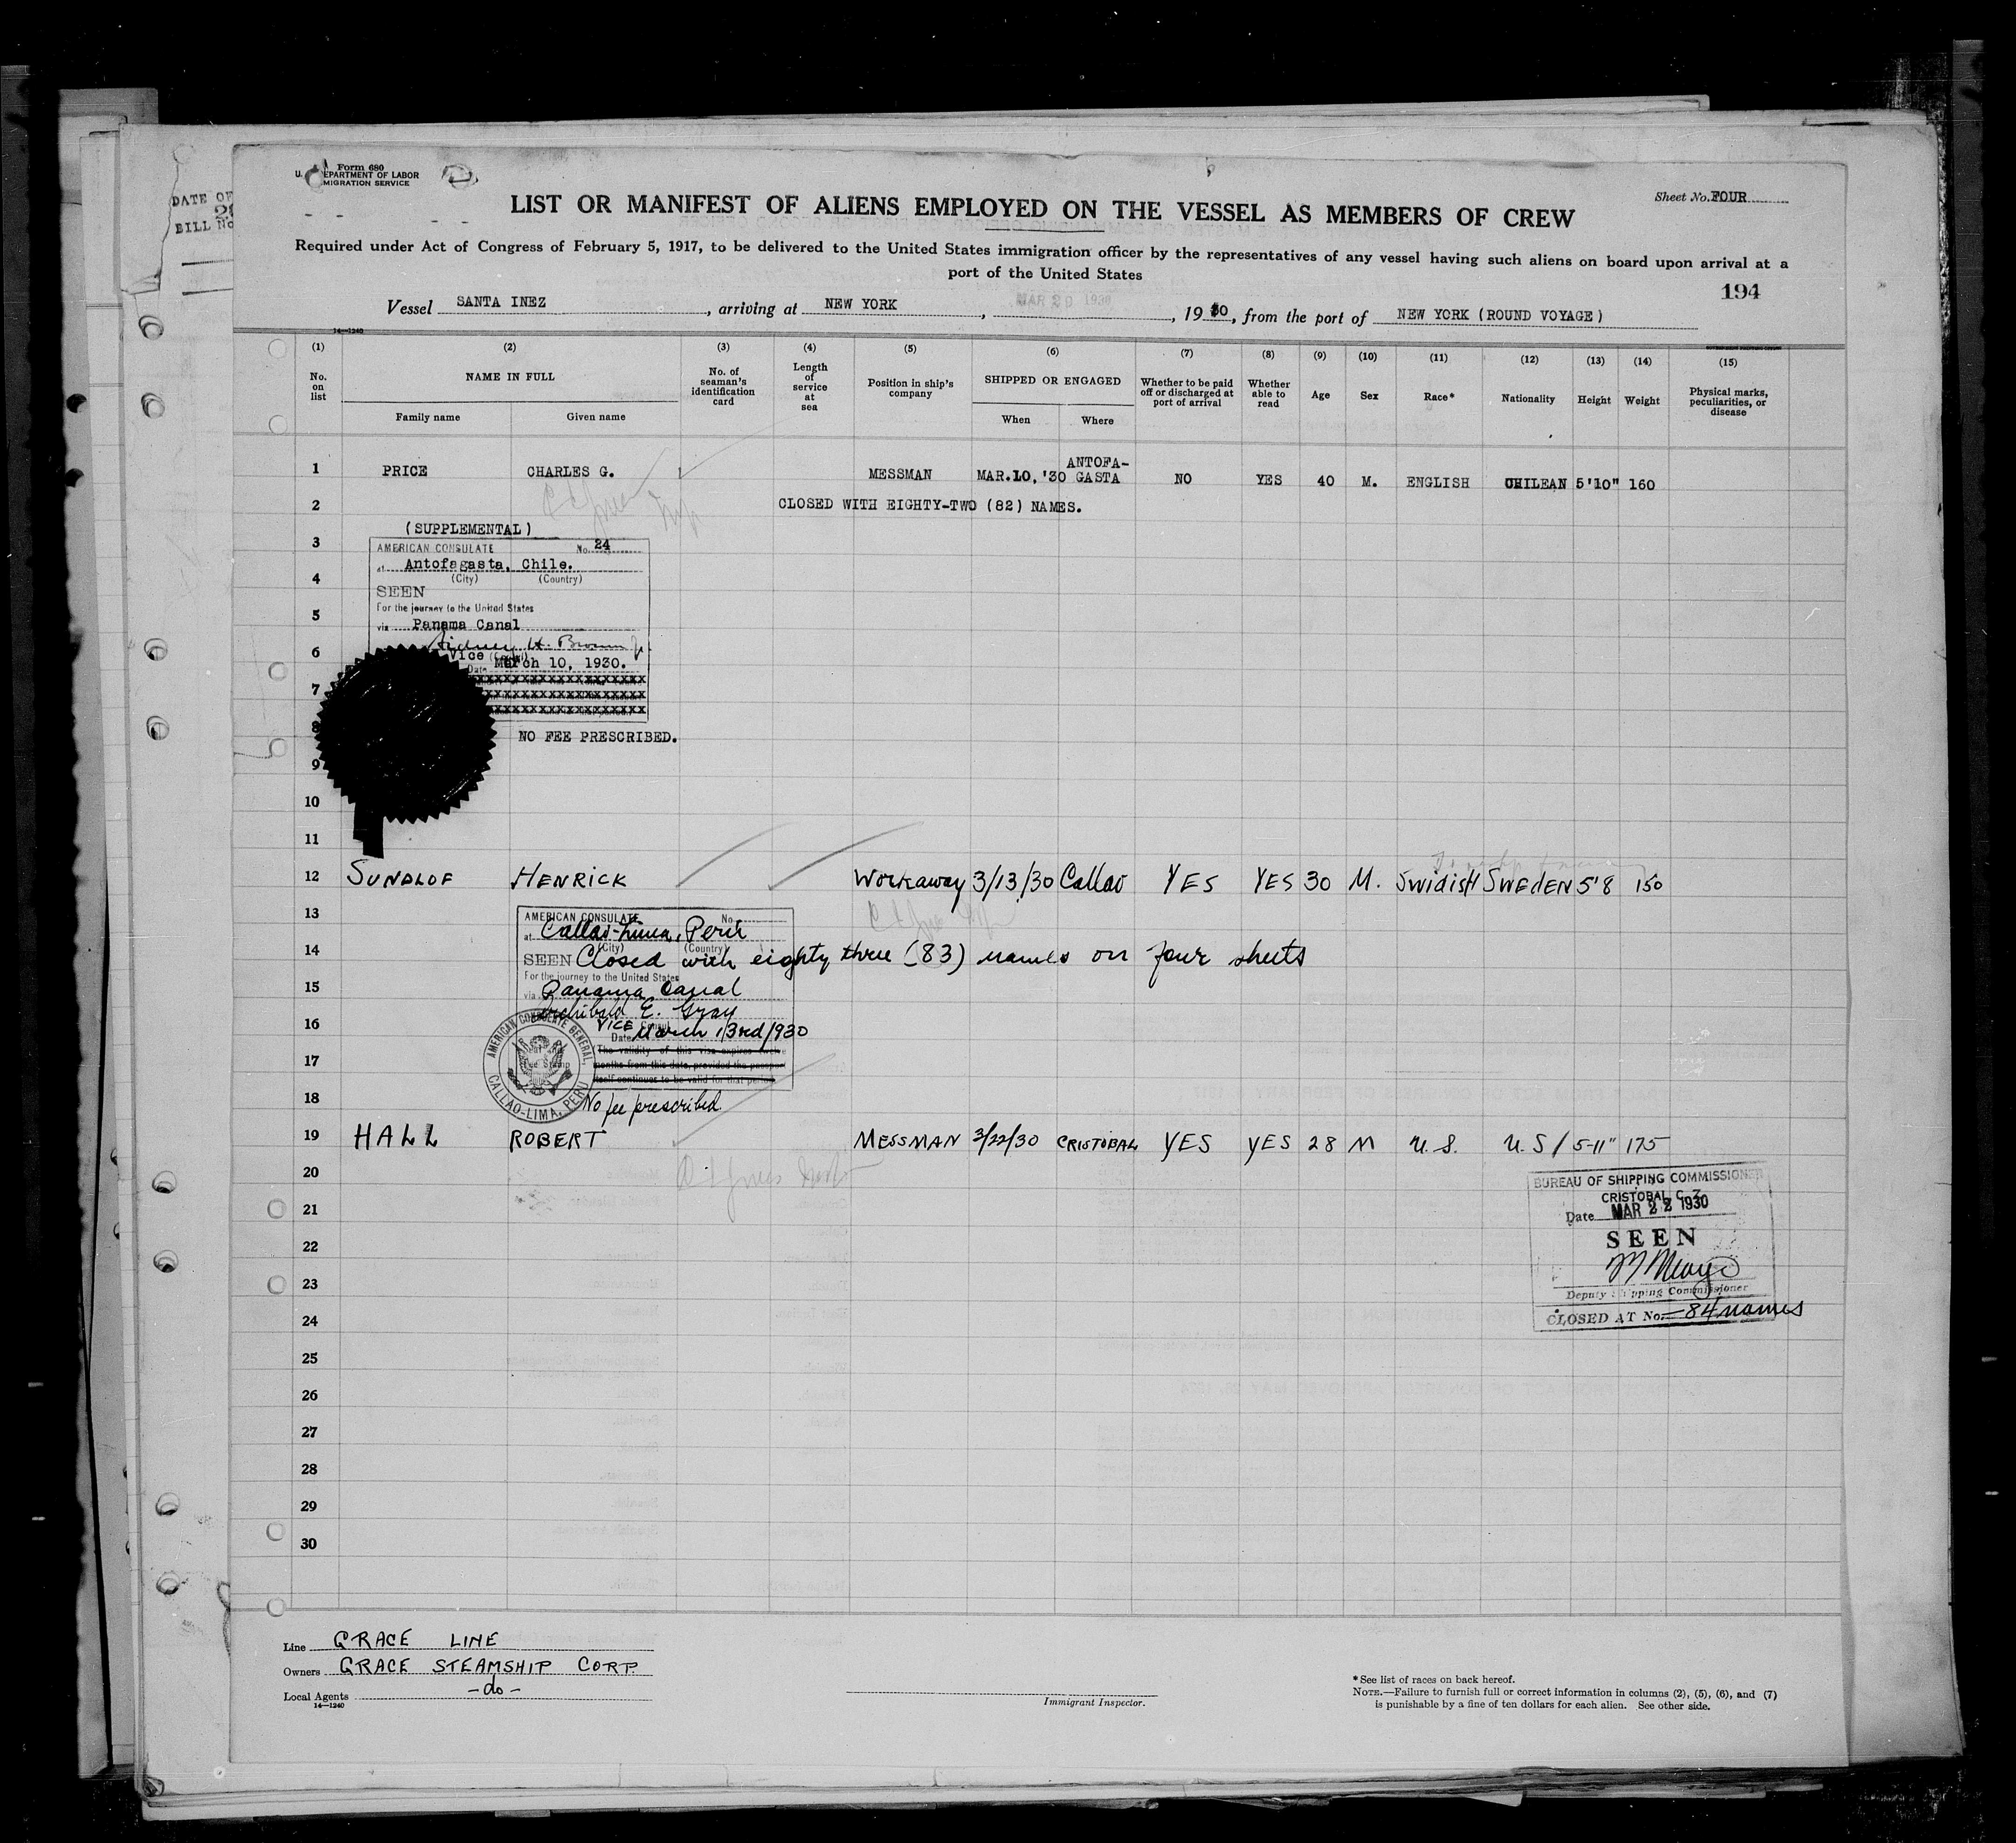 Form 680
U. EPARTMENT OF LABOR
MIGRATION SERVICE
DATE OF
BILL No
LIST OR MANIFEST OF ALIENS EMPLOYED ON THE VESSEL AS MEMBERS OF CREW
Sheet No. FOUR
Required under Act of Congress of February 5, 1917, to be delivered to the United States immigration officer by the representatives of any vessel having such aliens on board upon arrival at a
port of the United States
194
Vessel SANTA INEZ, arriving at NEW YORK, MAR 29 1930, 1930, from the port of NEW YORK (ROUND VOYAGE)
14—1240
(1) (2) (3) (4) (5) (6) (7) (8) (9) (10) (11) (12) (13) (14) (15)
No. on list
NAME IN FULL
Family name Given name
No. of seaman's identification card
Length of service at sea
Position in ship's company
SHIPPED OR ENGAGED
When Where
Whether to be paid off or discharged at port of arrival
Whether able to read
Age
Sex
Race*
Nationality
Height
Weight
Physical marks, peculiarities, or disease
1 PRICE CHARLES G. MESSMAN MAR.10,'30 ANTOFA-GASTA NO YES 40 M. ENGLISH CHILEAN 5'10" 160
2 CLOSED WITH EIGHTY-TWO (82) NAMES.
(SUPPLEMENTAL)
3 AMERICAN CONSULATE No. 24
at Antofagasta, Chile.
4 (City) (Country)
SEEN
5 For the journey to the United States
via Panama Canal
6 Sidney H. Brown Jr.
Vice (Consul)
Date March 10, 1930.
7 xxxxxxxxxxxxxxxxxxxxx
xxxxxxxxxxxxxxxxxxxxx
xxxxxxxxxxxxxxxxxxxxx
8 NO FEE PRESCRIBED.
9
10
11
12 SUNDLOF HENRICK Workaway 3/13/30 Callao YES YES 30 M. SWidisH SWEdEN 5'8 150
13 AMERICAN CONSULATE No.
at Callao-Lima, Peru
(City) (Country)
14 SEEN Closed with eighty three (83) names on four sheets
For the journey to the United States
15 via Panama Canal
Archibald E. Gray
16 VICE Consul
Date March 13rd/1930
The validity of this visa expires twelve
17 months from this date, provided the passport
itself continues to be valid for that period
AMERICAN CONSULATE GENERAL, CALLAO-LIMA, PERU
18 No fee prescribed.
19 HALL ROBERT MESSMAN 3/22/30 CRISTOBAL YES YES 28 M U.S. U.S/ 5-11" 175
20
BUREAU OF SHIPPING COMMISSIONER
CRISTOBAL C. Z.
21 Date MAR 22 1930
22 SEEN
23
Deputy Shipping Commissioner
24 CLOSED AT No. 84 names
25
26
27
28
29
30
Line GRACE LINE
Owners GRACE STEAMSHIP CORP.
Local Agents -do-
14—1240
Immigrant Inspector.
*See list of races on back hereof.
NOTE.—Failure to furnish full or correct information in columns (2), (5), (6), and (7)
is punishable by a fine of ten dollars for each alien. See other side.